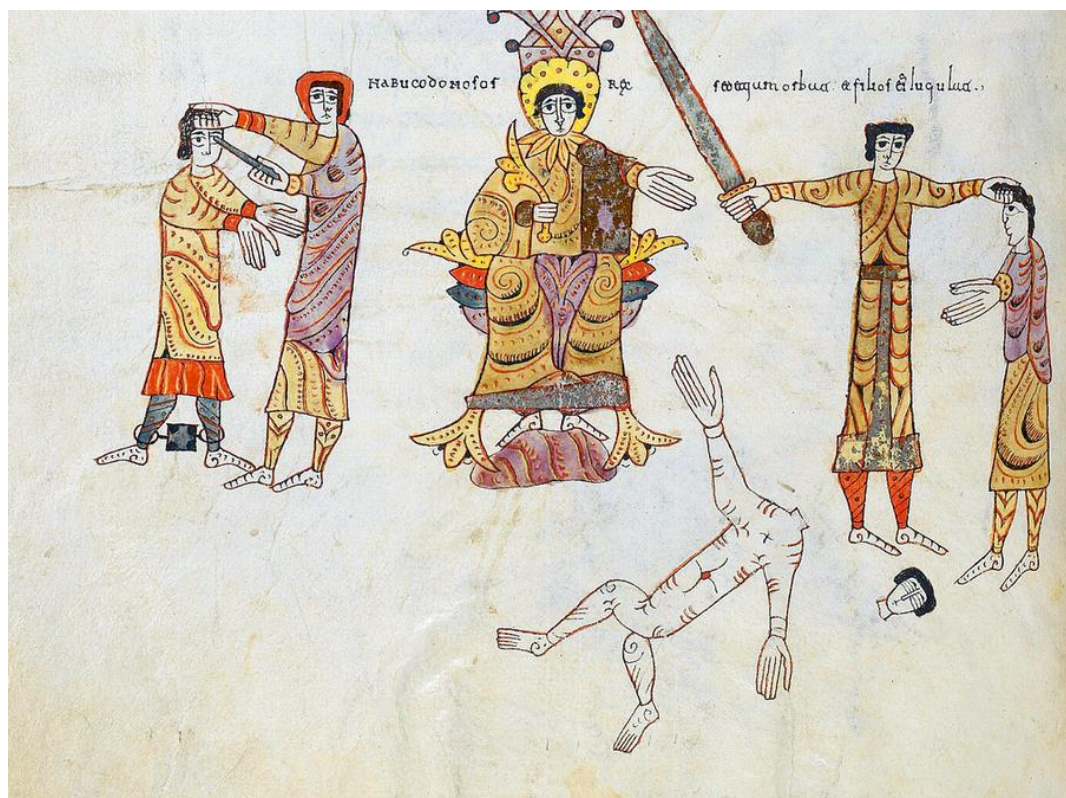 NABUCODONOSOR REX sedeciam orbat et filios ei iugulat.